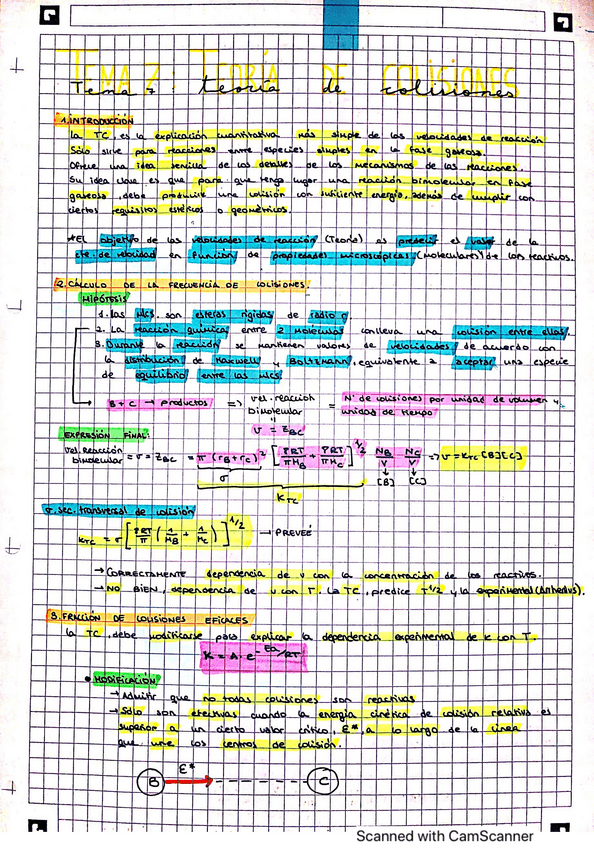 TEMA 7: TEORÍA DE COLISIONES
Tema 7 teoría de colisiones
1. INTRODUCCIÓN
la TC, es la explicación cuantitativa más simple de las velocidades de reacción
Sólo sirve para reacciones entre especies simples en la fase gaseosa.
Ofrece una idea sencilla de los detalles de los mecanismos de las reacciones.
Su idea clave es que para que tenga lugar una reacción bimolecular en fase
gaseosa, debe producirse una colisión con suficiente energía, además de cumplir con
ciertos requisitos estéricos o geométricos.
*El objetivo de las velocidades de reacción (Teoría) es predecir el valor de la
cte. de velocidad en función de propiedades microscópicas (moleculares) de los reactivos.
2. CÁLCULO DE LA FRECUENCIA DE COLISIONES.
HIPÓTESIS
1. las MCs. son esferas rígidas de radio r.
2. La reacción química entre 2 moléculas conlleva una colisión entre ellas.
3. Durante la reacción se mantienen valores de velocidades de acuerdo con
la distribución de Maxwell y BOLTZMANN, equivalente a aceptar una especie
de equilibrio entre las MCs
B + C → productos => vel. reacción bimolecular = Nº de colisiones por unidad de volumen y
unidad de tiempo
v = Z_BC
EXPRESIÓN FINAL:
vel. reacción bimolecular = v = Z_BC = π (r_B + r_C)² [8RT/πM_B + 8RT/πM_C]^1/2 N_B/V N_C/V => v = K_TC [B][C]
σ [B] [C]
K_TC
σ. sec. transversal de colisión
K_TC = σ [8RT/π (1/M_B + 1/M_C)]^1/2 → PREVEÉ
→ CORRECTAMENTE dependencia de v con la concentración de los reactivos.
→ NO BIEN, dependencia de v con T. la TC, predice T^1/2 y la experimental (Arrhenius).
3. FRACCIÓN DE COLISIONES EFICACES
la TC, debe modificarse para explicar la dependencia experimental de k con T.
K = A · e^-Ea/RT
• MODIFICACIÓN
→ Admitir que no todas colisiones son reactivas
→ Sólo son efectivas cuando la energía cinética de colisión relativa es
superior a un cierto valor crítico, E*, a lo largo de la línea
que une los centros de colisión.
E*
B C
Scanned with CamScanner